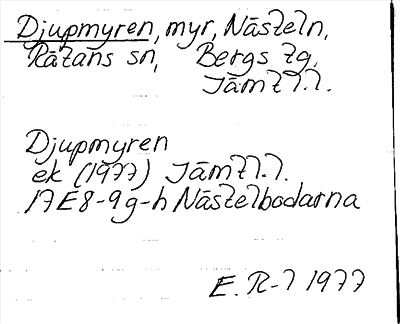 Djupmyren, myr, Nästeln,
Rätans sn, Bergs tg,
Jämtl.l.
Djupmyren
ek (1977) Jämtl.l.
17E8-9g-h Nästelbodarna
E. R-l 1977